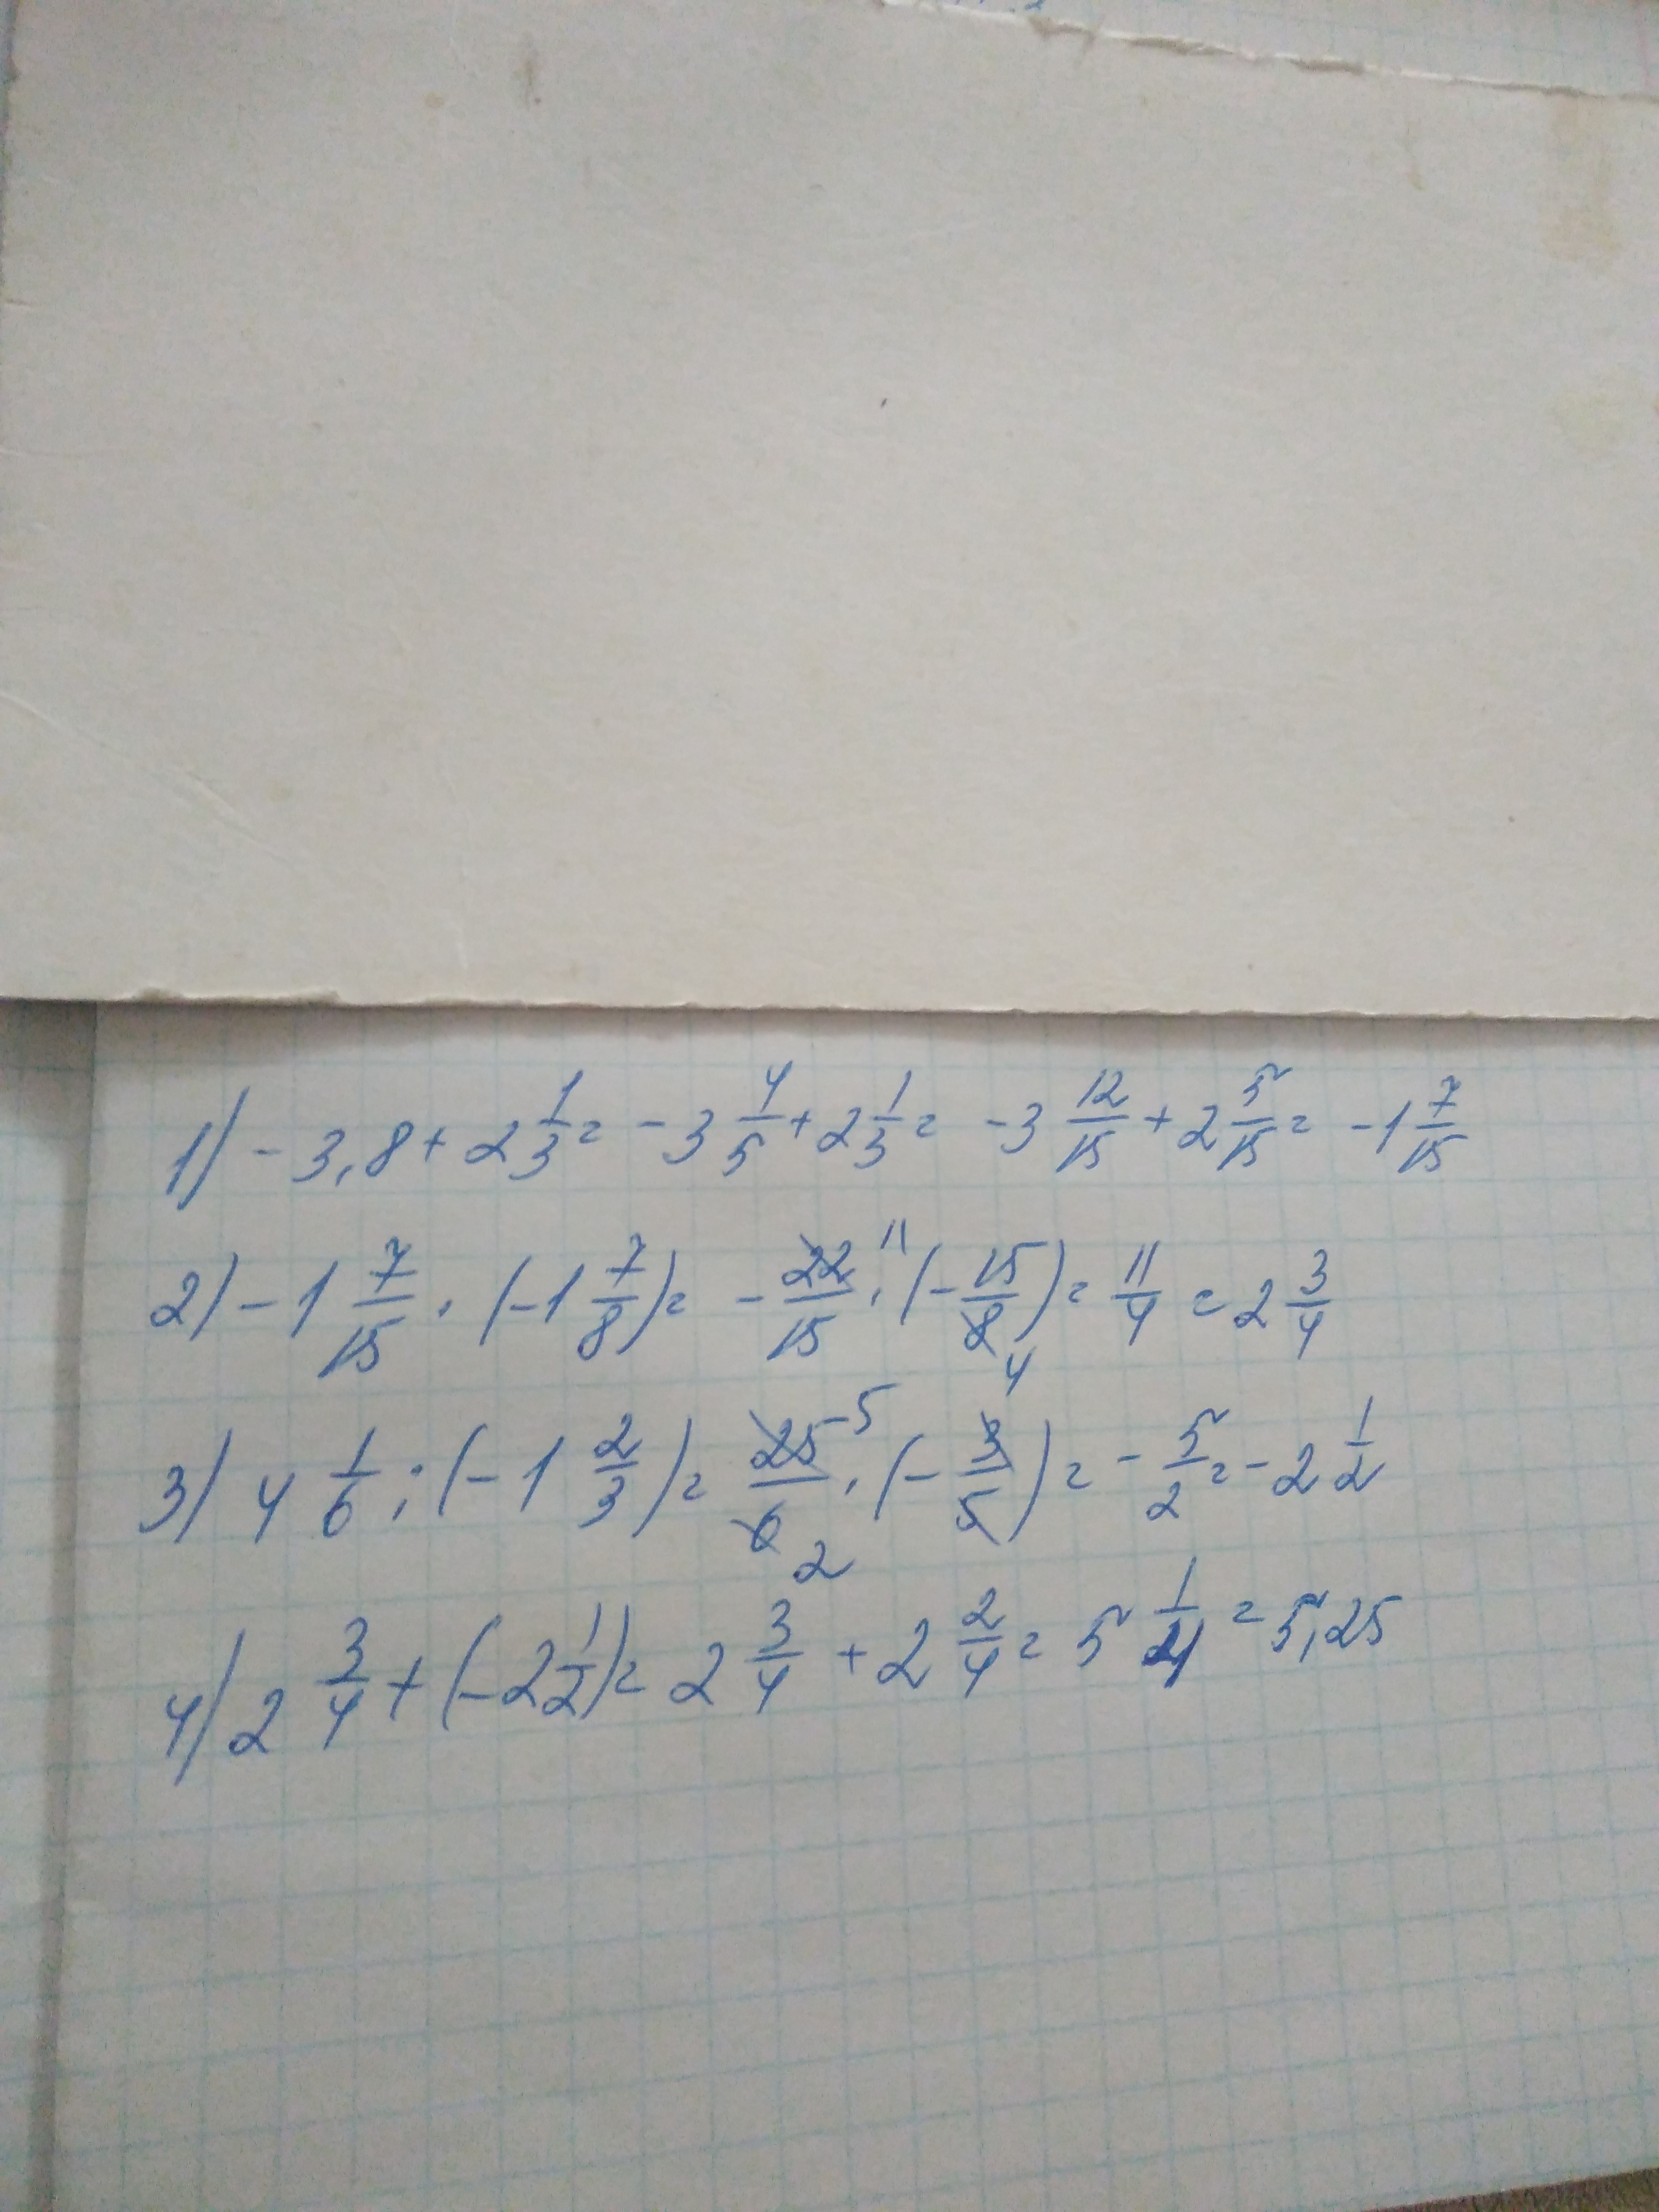 1) -3,8 + 2 1/3 = -3 4/5 + 2 1/3 = -3 12/15 + 2 5/15 = -1 7/15
2) -1 7/15 · (-1 7/8) = - 22/15 11 · (- 15/8 4) = 11/4 = 2 3/4
3) 4 1/6 : (-1 2/3) = 25/6 5 2 · (- 3/5) = - 5/2 = -2 1/2
4) 2 3/4 + (-2 1/2) = 2 3/4 + 2 2/4 = 5 1/4 = 5,25